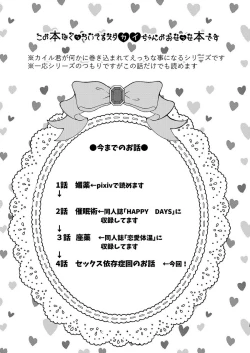 ※カイル君が何かに巻き込まれてえっちな事になるシリーズです
※一応シリーズのつもりですがこの話だけでも読めます
●今までのお話●
1話 媚薬←pixivで読めます
↓
2話 催眠術←同人誌「HAPPY DAYS」に
収録してます
↓
3話 座薬 ←同人誌「恋愛体温」に
収録してます
↓
4話 セックス依存症回のお話 ←今回!